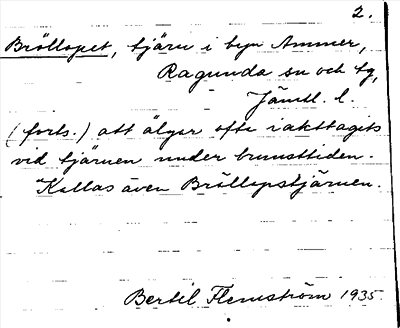 2.
Bröllopet, tjärn i byn Ammer,
Ragunda sn och tg,
Jämtl. l.
(forts.) att älgar ofta iakttagits
vid tjärnen under brunsttiden.
Kallas även Bröllopstjärnen.
Bertil Flemström 1935